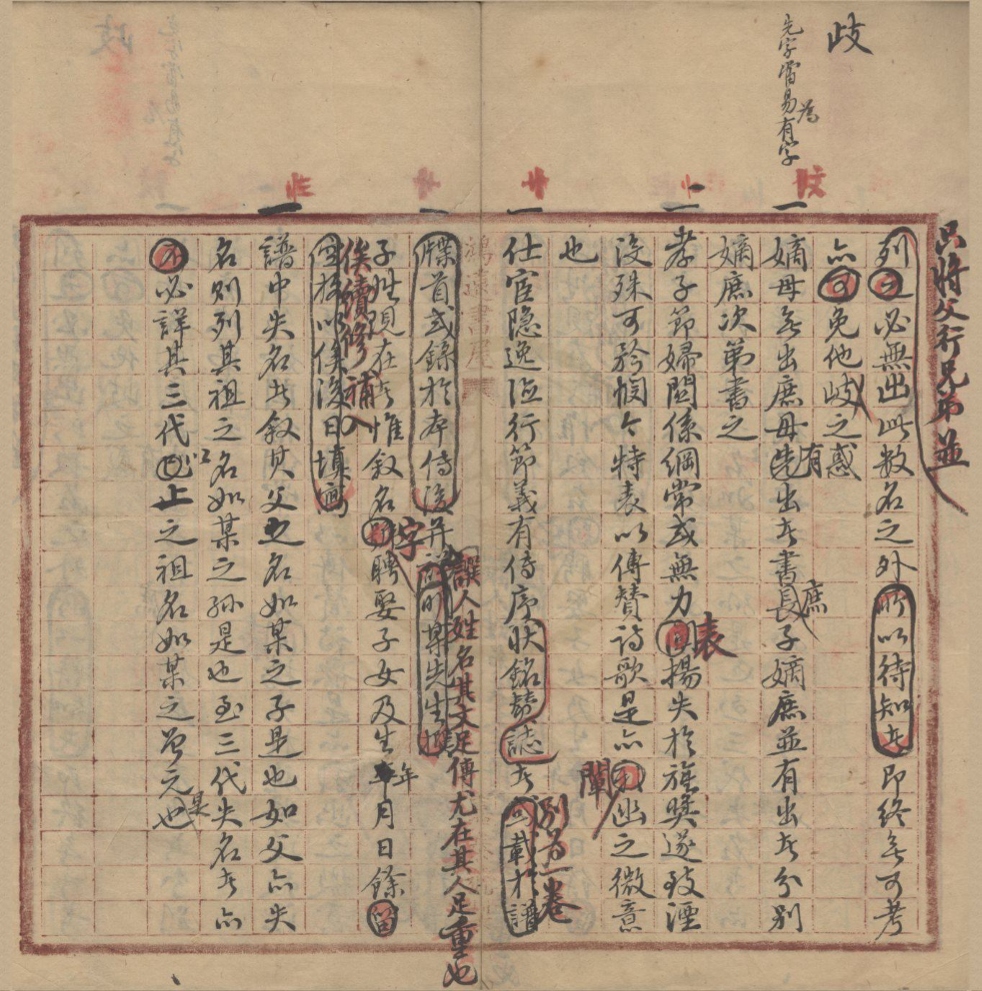 歧
先字當易為有字
只將父行兄弟並
列之必無出此數名之外所以待知者即終無可考
亦可免他歧之惑
嫡母無出庶母先有出者書長庶子嫡庶並有出者分別
嫡庶次第書之
孝子節婦關係綱常或無力表揚失於旌獎遂致湮
沒殊可矜憫今特表以傳贊詩歌是亦闡幽之微意
也
仕宦隐逸德行節義有傳序狀銘贊誌者可載於譜
別為一卷
牒首或錄於本傳後并註明某先生撰
譔人姓名其文足傳尤在其人足重也
子姓現在者惟叙名字聘娶子女及生年月日餘留
俟續修補入
空格以俟後日填寫
譜中失名者叙其父之名如某之子是也如父亦失
名則列其祖之名如某之孫是也至三代失名者亦
不必詳其三代以上之祖名如某之曾元是也